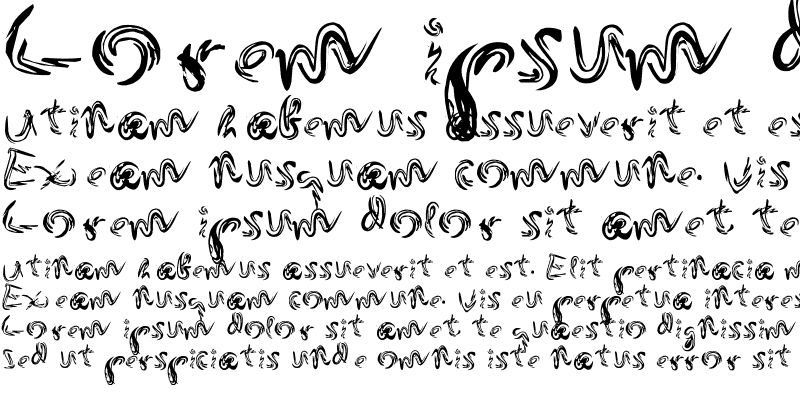 Lorem ipsum d
Utinam habemus assueverit et es
Ex eam nusquam commune. Vis
Lorem ipsum dolor sit amet te
Utinam habemus assueverit et est. Elit pertinacia
Ex eam nusquam commune. Vis eu perpetua interes
Lorem ipsum dolor sit amet te quaestio dignissim
Sed ut perspiciatis unde omnis iste natus error sit